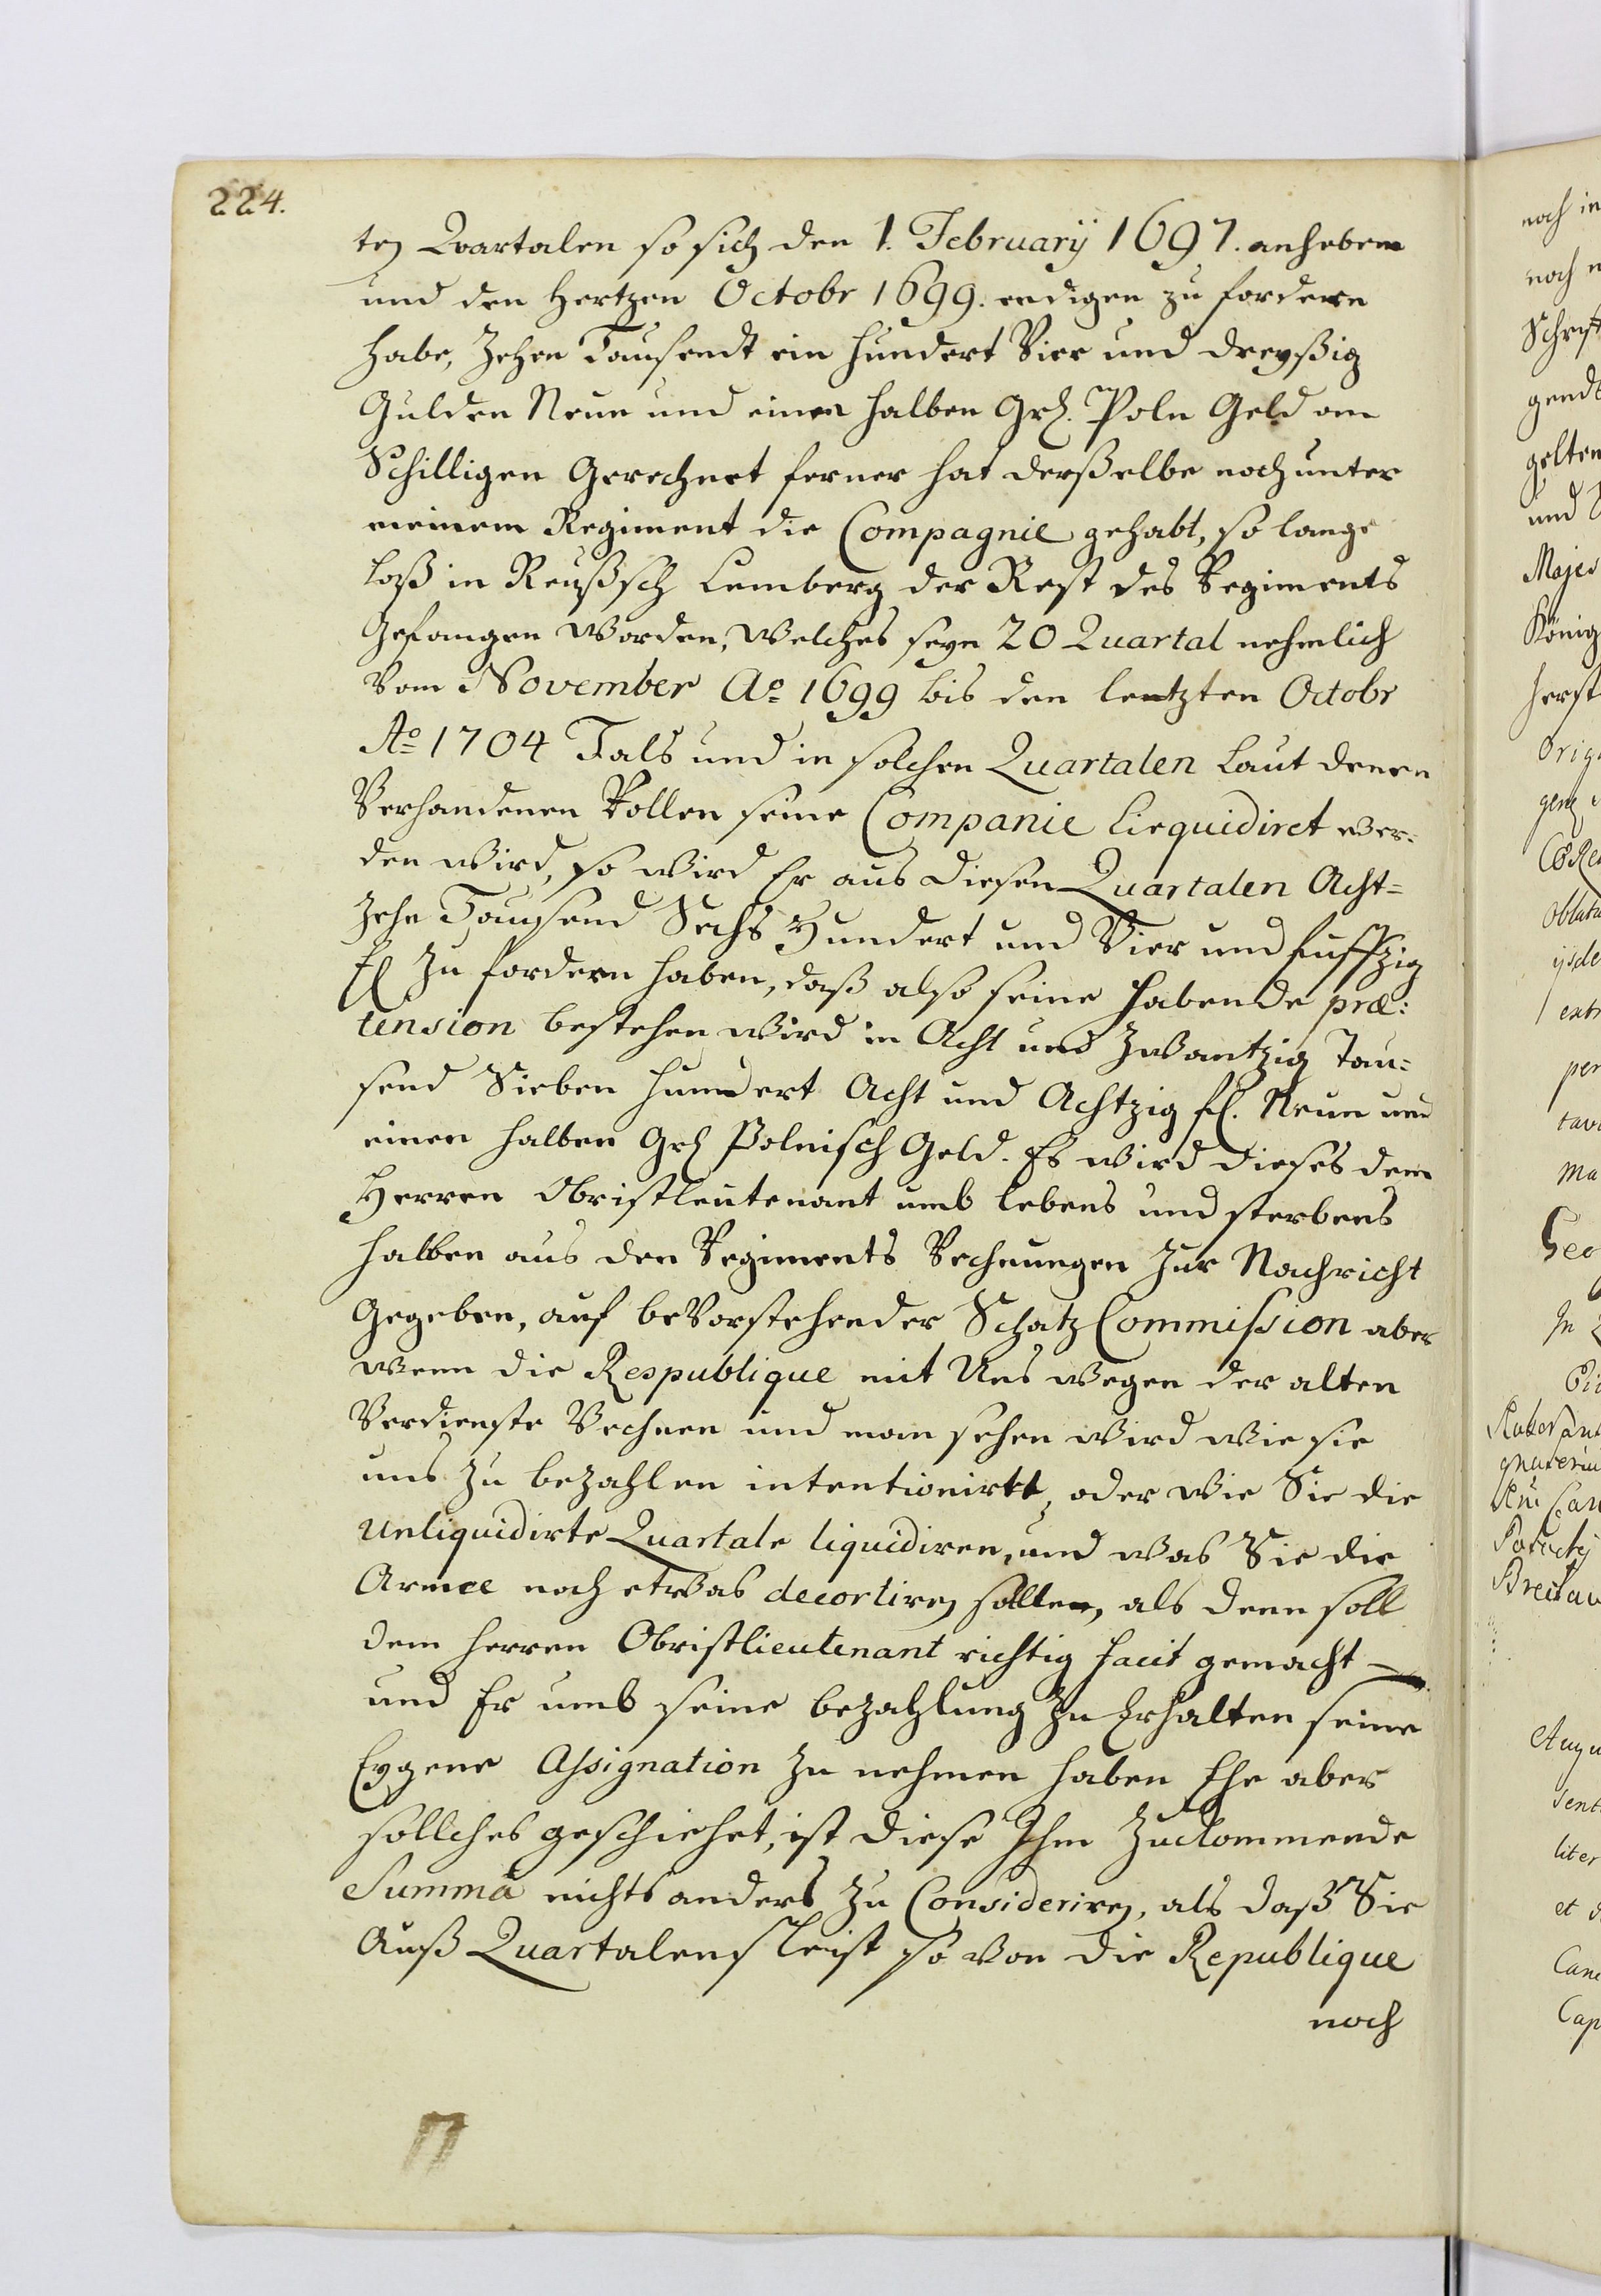 224.
ten Quartalen so sich den 1. Februarÿ 1697. anheben
und den Hertzen Octobr 1699. endigen zu fordern
habe, Zehen Tausendt ein hundert Vier und dreyßig
Gulden Neun und einen halben Grl. Poln Geld am
Schilligen Gerechnet ferner hat derßelbe noch unter
meinem Regiment die Compagnie gehabt, so lange
loß in Reußsch Lemberg der Rest des Regiments
Gefangen worden, welches seyn 20 Quartal nehmlich
Vom November Ao 1699 bis den lentzten Octobr
Ao 1704 Fals und in solchen Quartalen Laut denen
Verhandenen Rollen seine Companie liequidiret wer=
den wird, so wird Er aus diesen Quartalen Acht=
Zehn Tausend Sechs Hundert und Vier und fuffzig
fl zu fordern haben, daß also seine habende præ:
tension bestehen wird in Acht und Zwantzig Tau=
send Sieben hundert Acht und Achtzig fl. Neun und
einen halben Grl Polnisch Geld. Es wird dieses dem
Herren Obristleutenant umb lebens und sterbens
halben aus den Regiments Rechnungen Zur Nachricht
Gegeben, auf bevorstehender Schatz Commission aber
wenn die Respublique mit Uns wegen der alten
Verdienste Rechnen und man sehen wird wie sie
uns zu bezahlen intentionirtt, oder wie Sie die
Unliquidirte Quartale liquidiren, und was Sie die
Armee noch etwas decortiren sollen, als denn soll
dem Herren Obristlieutenant richtig facit gemacht
und Er umb seine bezahlung zu Erhalten seine
Eygene Assignation zu nehmen haben Ehe aber
sollches geschiehet, ist diese Ihm Zuckommende
Summa nichts anders zu Consideriren, als daß Sie
Auß Quartalen so von die Republique
noch